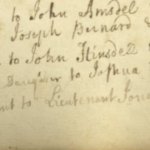 to John Amsdel
Joseph Bernard &
to John Hinsdell
Daughter to Joshua
nt to Lieutenant Jona